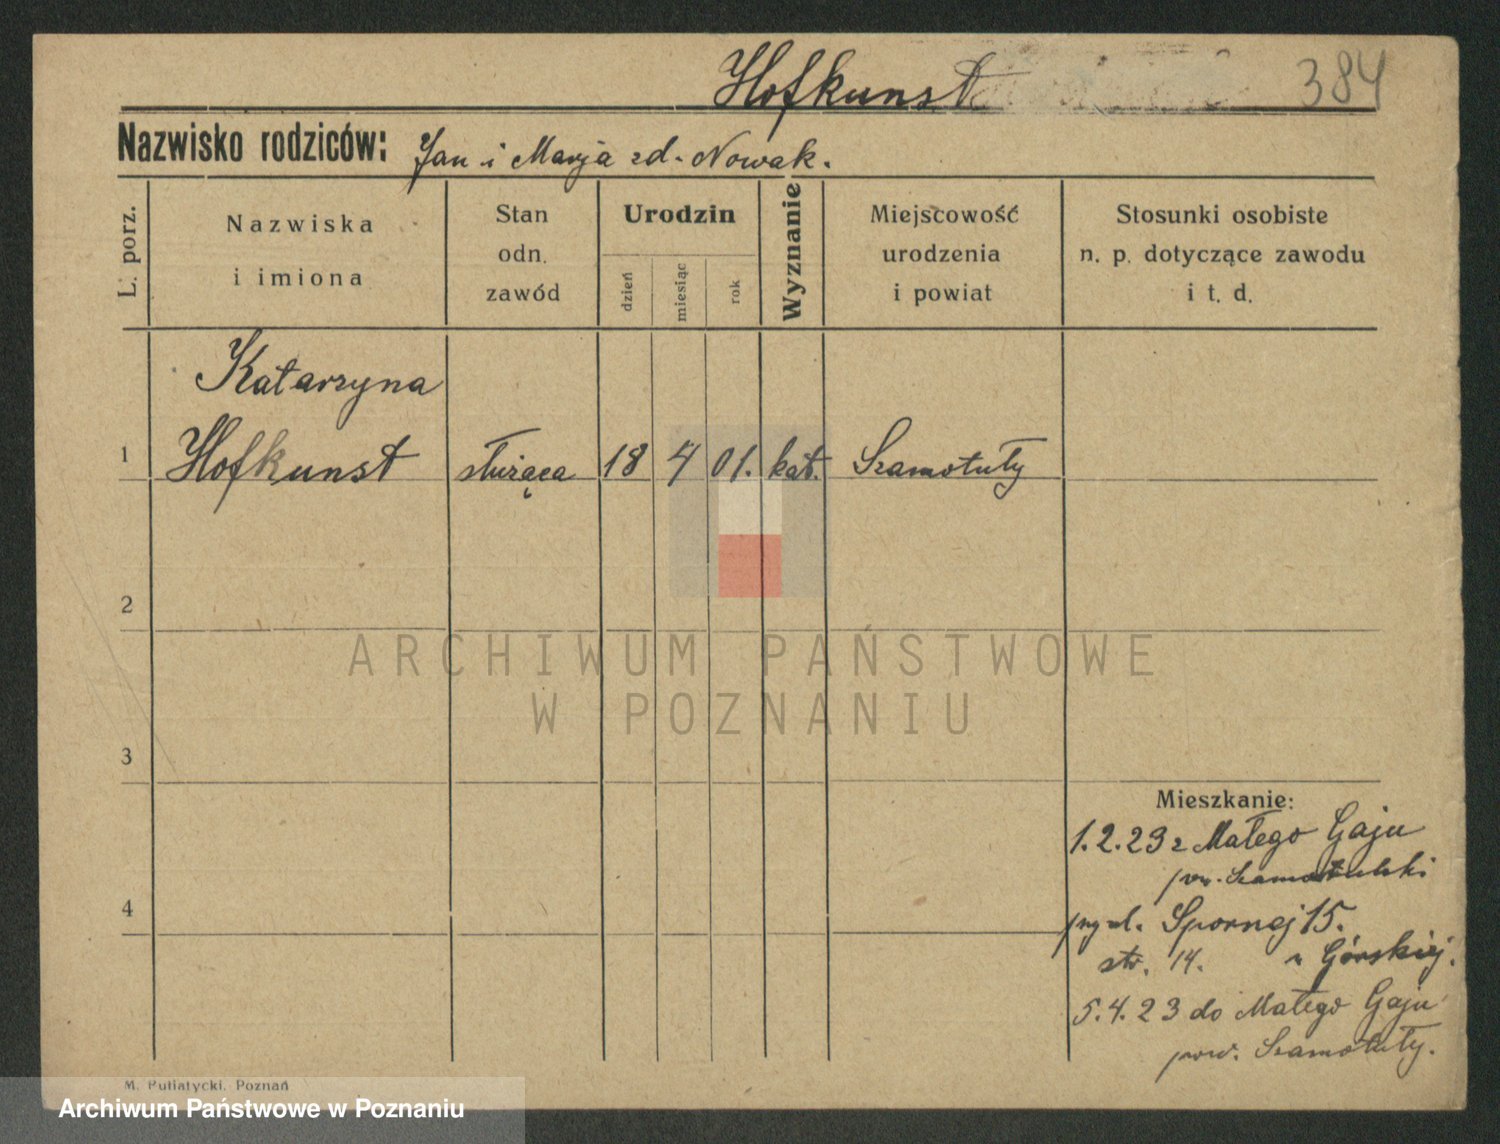 Hofkunst 384
Nazwisko rodziców: Jan i Marja zd. Nowak.
L. porz.
Nazwiska
i imiona
Stan
odn.
zawód
Urodzin
dzień
miesiąc
rok
Wyznanie
Miejscowość
urodzenia
i powiat
Stosunki osobiste
n. p. dotyczące zawodu
i t. d.
Katarzyna
1 Hofkunst służąca 18 4 01. kat. Szamotuły
2
ARCHIWUM PAŃSTWOWE
W POZNANIU
3
Mieszkanie:
1.2.23 z Małego Gaju
pow. Szamotulski
4
przy ul. Spornej 15.
str. 14. u Górskiej.
5.4.23 do Małego Gaju
pow. Szamotuły.
M. Putiatycki, Poznań
Archiwum Państwowe w Poznaniu